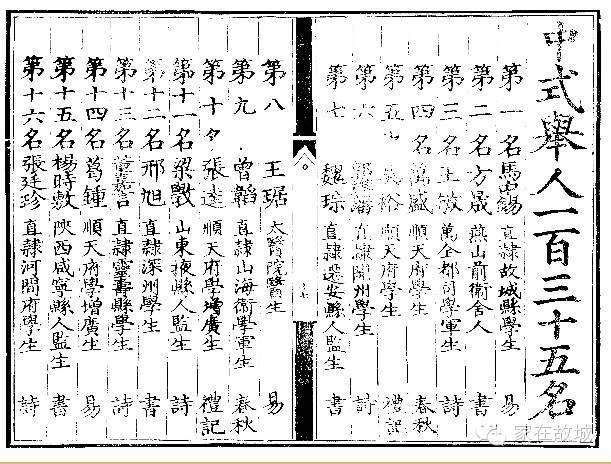 中式舉人一百三十五名
第一名 馬中錫 直隸故城縣學生 易
第二名 方晟 燕山前衛舍人 書
第三名 王敏 萬全都司學軍生 詩
第四名 盛 順天府學生 春秋
第五 裕 順天府學生 禮記
第六 直隸 州學生 詩
第七 魏琮 直隸遷安縣人監生 書
第八 王琚 太醫院醫生 易
第九 曾韜 直隸山海衛學軍生 春秋
第十 張達 順天府學增廣生 禮記
第十一名 梁 山東掖縣人監生 詩
第十二名 邢旭 直隸深州學生 書
第十三名 直隸靈壽縣學生 詩
第十四名 葛鍾 順天府學增廣生 易
第十五名 楊時敷 陝西咸寧縣人監生 書
第十六名 張廷珍 直隸河間府學生 詩
家在故城